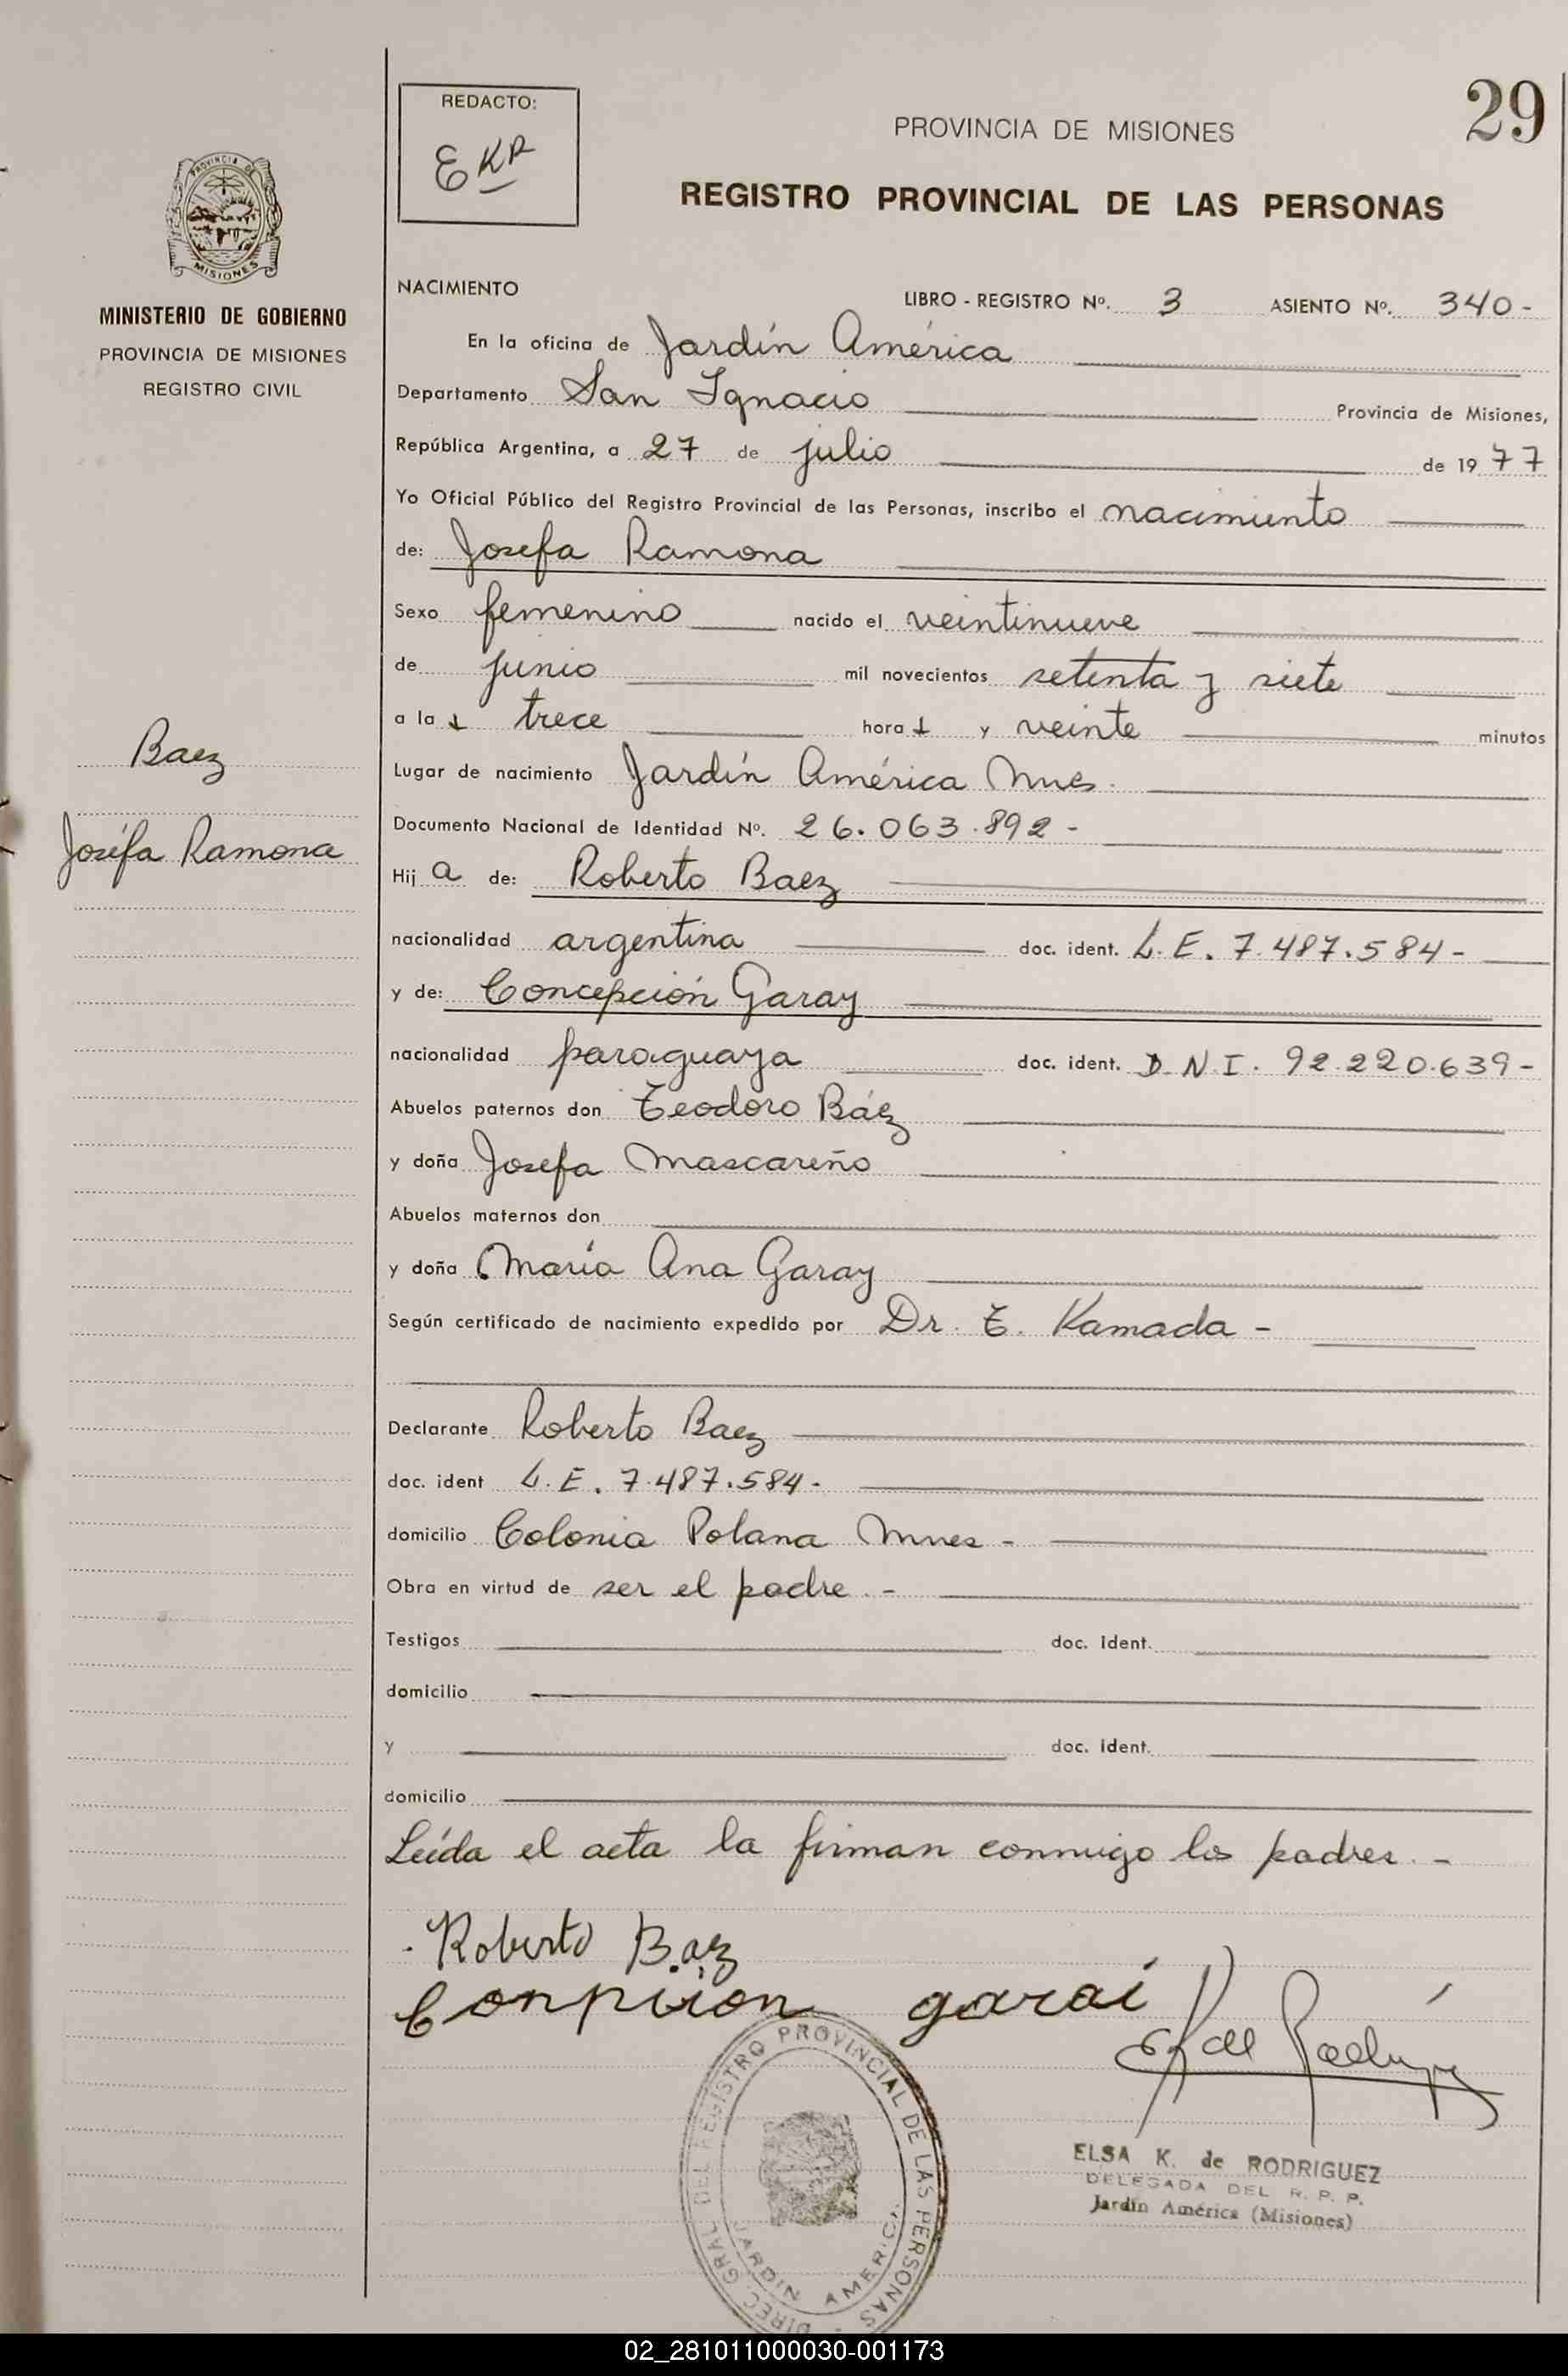 29
REDACTO:
EKR
PROVINCIA DE MISIONES
REGISTRO PROVINCIAL DE LAS PERSONAS
PROVINCIA DE
MISIONES
MINISTERIO DE GOBIERNO
PROVINCIA DE MISIONES
REGISTRO CIVIL
Baez
Joséfa Ramona
NACIMIENTO LIBRO - REGISTRO Nº. 3 ASIENTO Nº. 340-
En la oficina de Jardín América
Departamento San Ignacio Provincia de Misiones,
República Argentina, a 27 de julio de 1977
Yo Oficial Público del Registro Provincial de las Personas, inscribo el nacimiento
de: Josefa Ramona
Sexo femenino nacido el veintinueve
de junio mil novecientos setenta y siete
a la s trece hora s y veinte minutos
Lugar de nacimiento Jardín América Mnes.
Documento Nacional de Identidad Nº. 26.063.892-
Hij a de: Roberto Baez
nacionalidad argentina doc. ident. L.E. 7.487.584-
y de: Concepción Garay
nacionalidad paraguaya doc. ident. D.N.I. 92.220.639-
Abuelos paternos don Teodoro Báez
y doña Josefa Mascareño
Abuelos maternos don
y doña María Ana Garay
Según certificado de nacimiento expedido por Dr. T. Kamada -
Declarante Roberto Baez
doc. ident L.E. 7.487.584-
domicilio Colonia Polana Mnes -
Obra en virtud de ser el padre.-
Testigos doc. ident.
domicilio
y doc. ident.
domicilio
Leída el acta la firman conmigo los padres.-
Roberto Baez
Conpsion garai
DIREC. GRAL DEL REGISTRO PROVINCIAL DE LAS PERSONAS
JARDIN AMERICA
ELSA K. de RODRIGUEZ
DELEGADA DEL R. P. P.
Jardín América (Misiones)
02_281011000030-001173